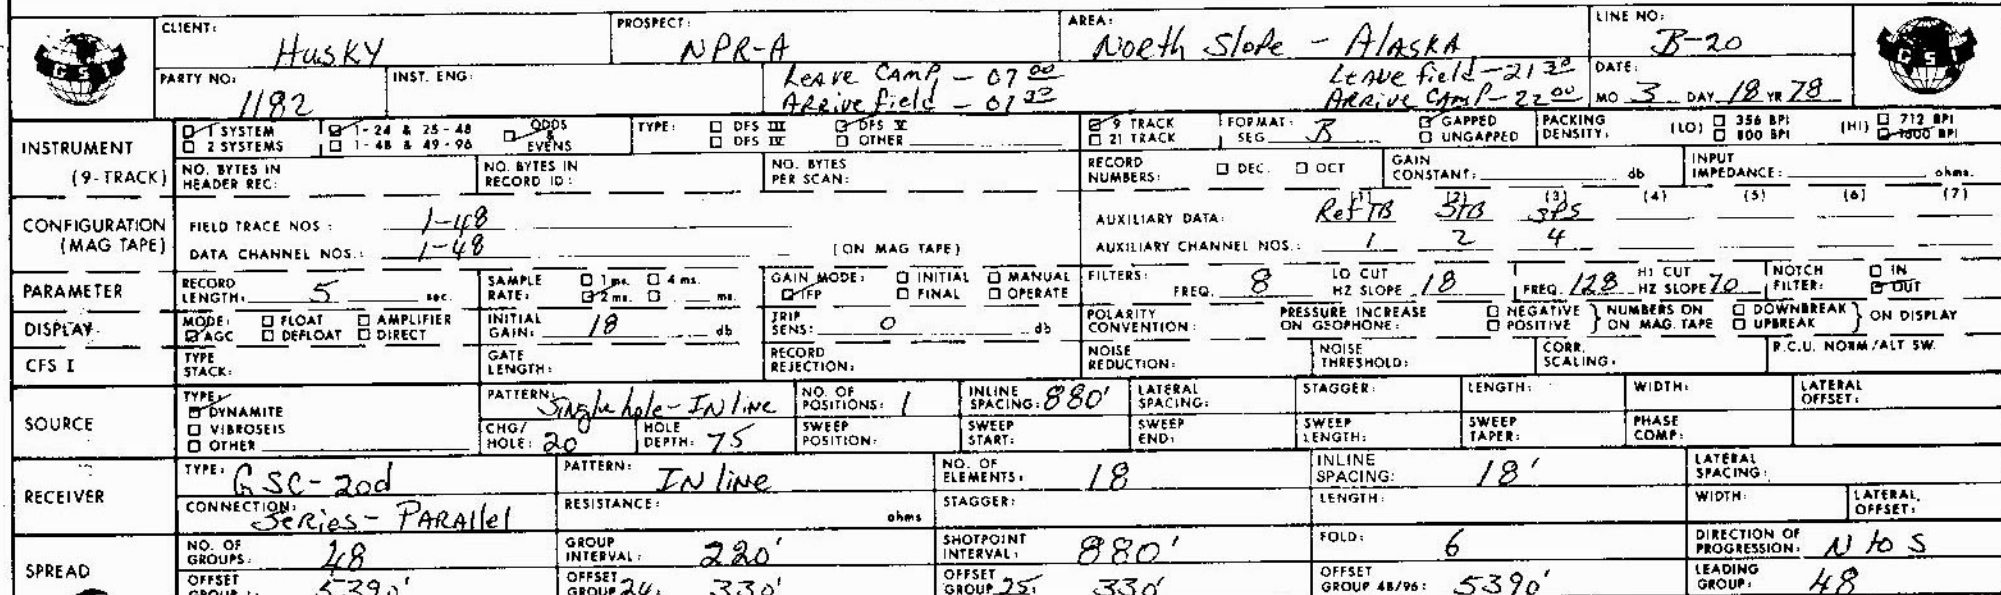 CLIENT: Husky PROSPECT: NPR-A AREA: North Slope - Alaska LINE NO: B-20
GSI GSI
PARTY NO: 1182 INST. ENG: Leave Camp - 07 00 Leave field - 21 30 DATE:
Arrive field - 07 30 Arrive Camp - 22 00 MO 3 DAY 18 YR 78
INSTRUMENT (9-TRACK) 1 SYSTEM 1-24 & 25-48 ODDS & EVENS TYPE: DFS III DFS V 9 TRACK FORMAT: SEG B GAPPED PACKING DENSITY: (LO) 356 BPI (HI) 712 BPI
2 SYSTEMS 1-48 & 49-96 DFS IV OTHER 21 TRACK UNGAPPED 800 BPI 1600 BPI
NO. BYTES IN HEADER REC: NO. BYTES IN RECORD ID: NO. BYTES PER SCAN: RECORD NUMBERS: DEC. OCT GAIN CONSTANT: db INPUT IMPEDANCE: ohms.
CONFIGURATION (MAG TAPE) (1) (2) (3) (4) (5) (6) (7)
FIELD TRACE NOS: 1-48 AUXILIARY DATA: Ref TB STB SPS
DATA CHANNEL NOS.: 1-48 (ON MAG TAPE) AUXILIARY CHANNEL NOS.: 1 2 4
PARAMETER RECORD LENGTH: 5 sec. SAMPLE RATE: 1 ms. 4 ms. 2 ms. ms. GAIN MODE: INITIAL MANUAL IFP FINAL OPERATE FILTERS: FREQ. 8 LO CUT HZ SLOPE 18 FREQ. 128 HI CUT HZ SLOPE 70 NOTCH FILTER: IN OUT
DISPLAY MODE: FLOAT AMPLIFIER AGC DEFLOAT DIRECT INITIAL GAIN: 18 db TRIP SENS: 0 db POLARITY CONVENTION: PRESSURE INCREASE ON GEOPHONE: NEGATIVE POSITIVE NUMBERS ON ON MAG. TAPE DOWNBREAK UPBREAK ON DISPLAY
CFS I TYPE STACK: GATE LENGTH: RECORD REJECTION: NOISE REDUCTION: NOISE THRESHOLD: CORR. SCALING: R.C.U. NORM/ALT SW.
SOURCE TYPE: DYNAMITE VIBROSEIS OTHER PATTERN: Single hole - Inline NO. OF POSITIONS: 1 INLINE SPACING: 880' LATERAL SPACING: STAGGER: LENGTH: WIDTH: LATERAL OFFSET:
CHG/HOLE: 20 HOLE DEPTH: 75 SWEEP POSITION: SWEEP START: SWEEP END: SWEEP LENGTH: SWEEP TAPER: PHASE COMP:
RECEIVER TYPE: GSC-20d PATTERN: Inline NO. OF ELEMENTS: 18 INLINE SPACING: 18' LATERAL SPACING:
CONNECTION: Series - Parallel RESISTANCE: ohms STAGGER: LENGTH: WIDTH: LATERAL OFFSET:
SPREAD NO. OF GROUPS: 48 GROUP INTERVAL: 220' SHOTPOINT INTERVAL: 880' FOLD: 6 DIRECTION OF PROGRESSION: N to S
OFFSET GROUP 5390' OFFSET GROUP 24: 330' OFFSET GROUP 25: 330' OFFSET GROUP 48/96: 5390' LEADING GROUP: 48